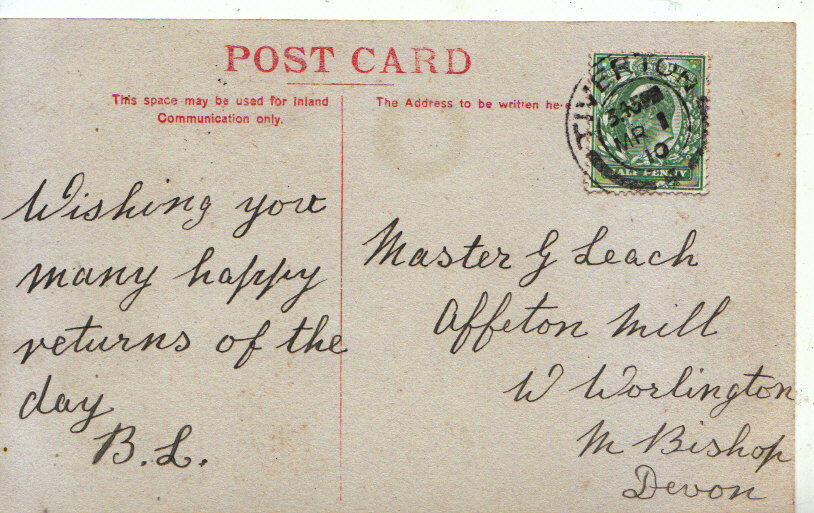 POST CARD
This space may be used for Inland
Communication only.
The Address to be written here
TIVERTON
3.45PM
MR 1
10
HALF PENNY
Wishing you
many happy
returns of the
day
B.L.
Master G Leach
Affeton Mill
W Worlington
M Bishop
Devon